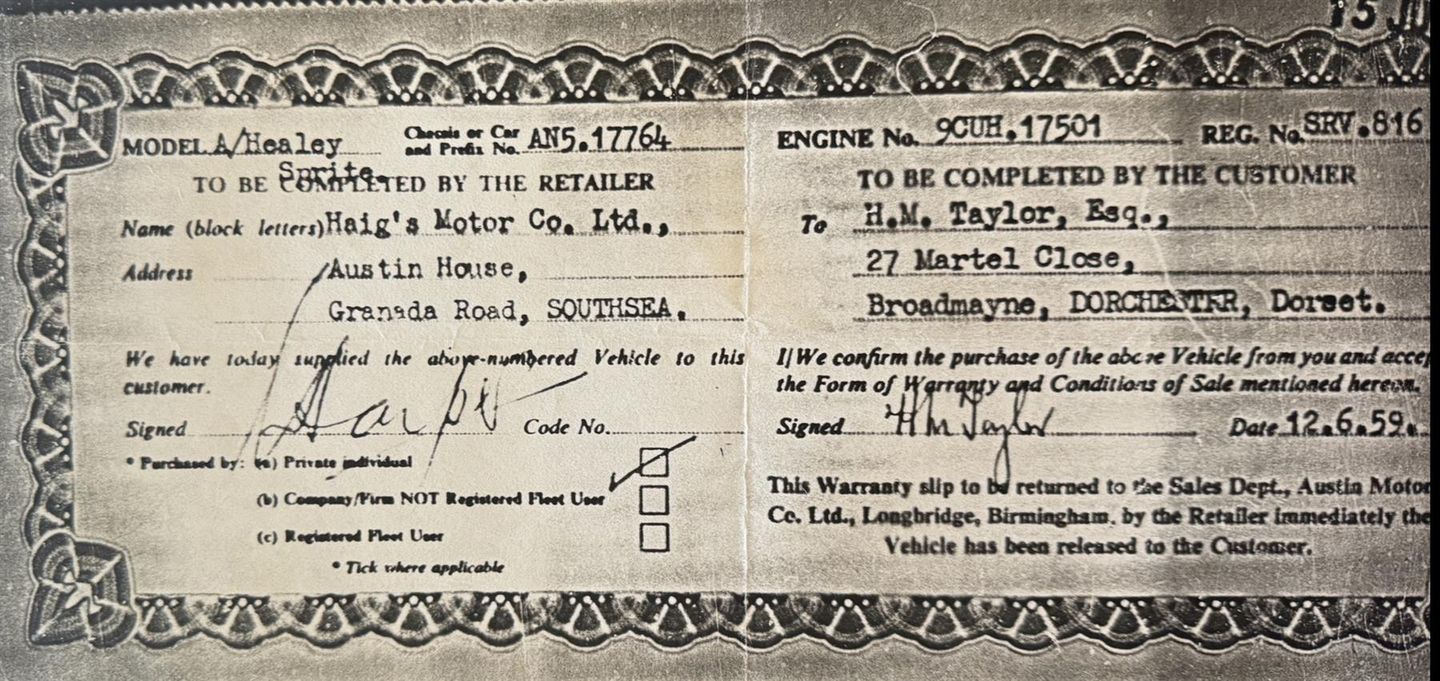 15 JU
MODEL A/Healey Sprite. Chassis or Car and Prefix No. AN5.17764
TO BE COMPLETED BY THE RETAILER
Name (block letters) Haig's Motor Co. Ltd.,
Address Austin House,
Granada Road, SOUTHSEA.
We have today supplied the above-numbered Vehicle to this
customer.
Signed Code No.
* Purchased by: (a) Private individual
(b) Company/Firm NOT Registered Fleet User
(c) Registered Fleet User
* Tick where applicable
ENGINE No. 9CUH.17501 REG. No. SRV.816
TO BE COMPLETED BY THE CUSTOMER
To H.M. Taylor, Esq.,
27 Martel Close,
Broadmayne, DORCHESTER, Dorset.
I/We confirm the purchase of the above Vehicle from you and accep
the Form of Warranty and Conditions of Sale mentioned hereon.
Signed H M Taylor Date 12.6.59.
This Warranty slip to be returned to the Sales Dept., Austin Motor
Co. Ltd., Longbridge, Birmingham, by the Retailer immediately the
Vehicle has been released to the Customer.